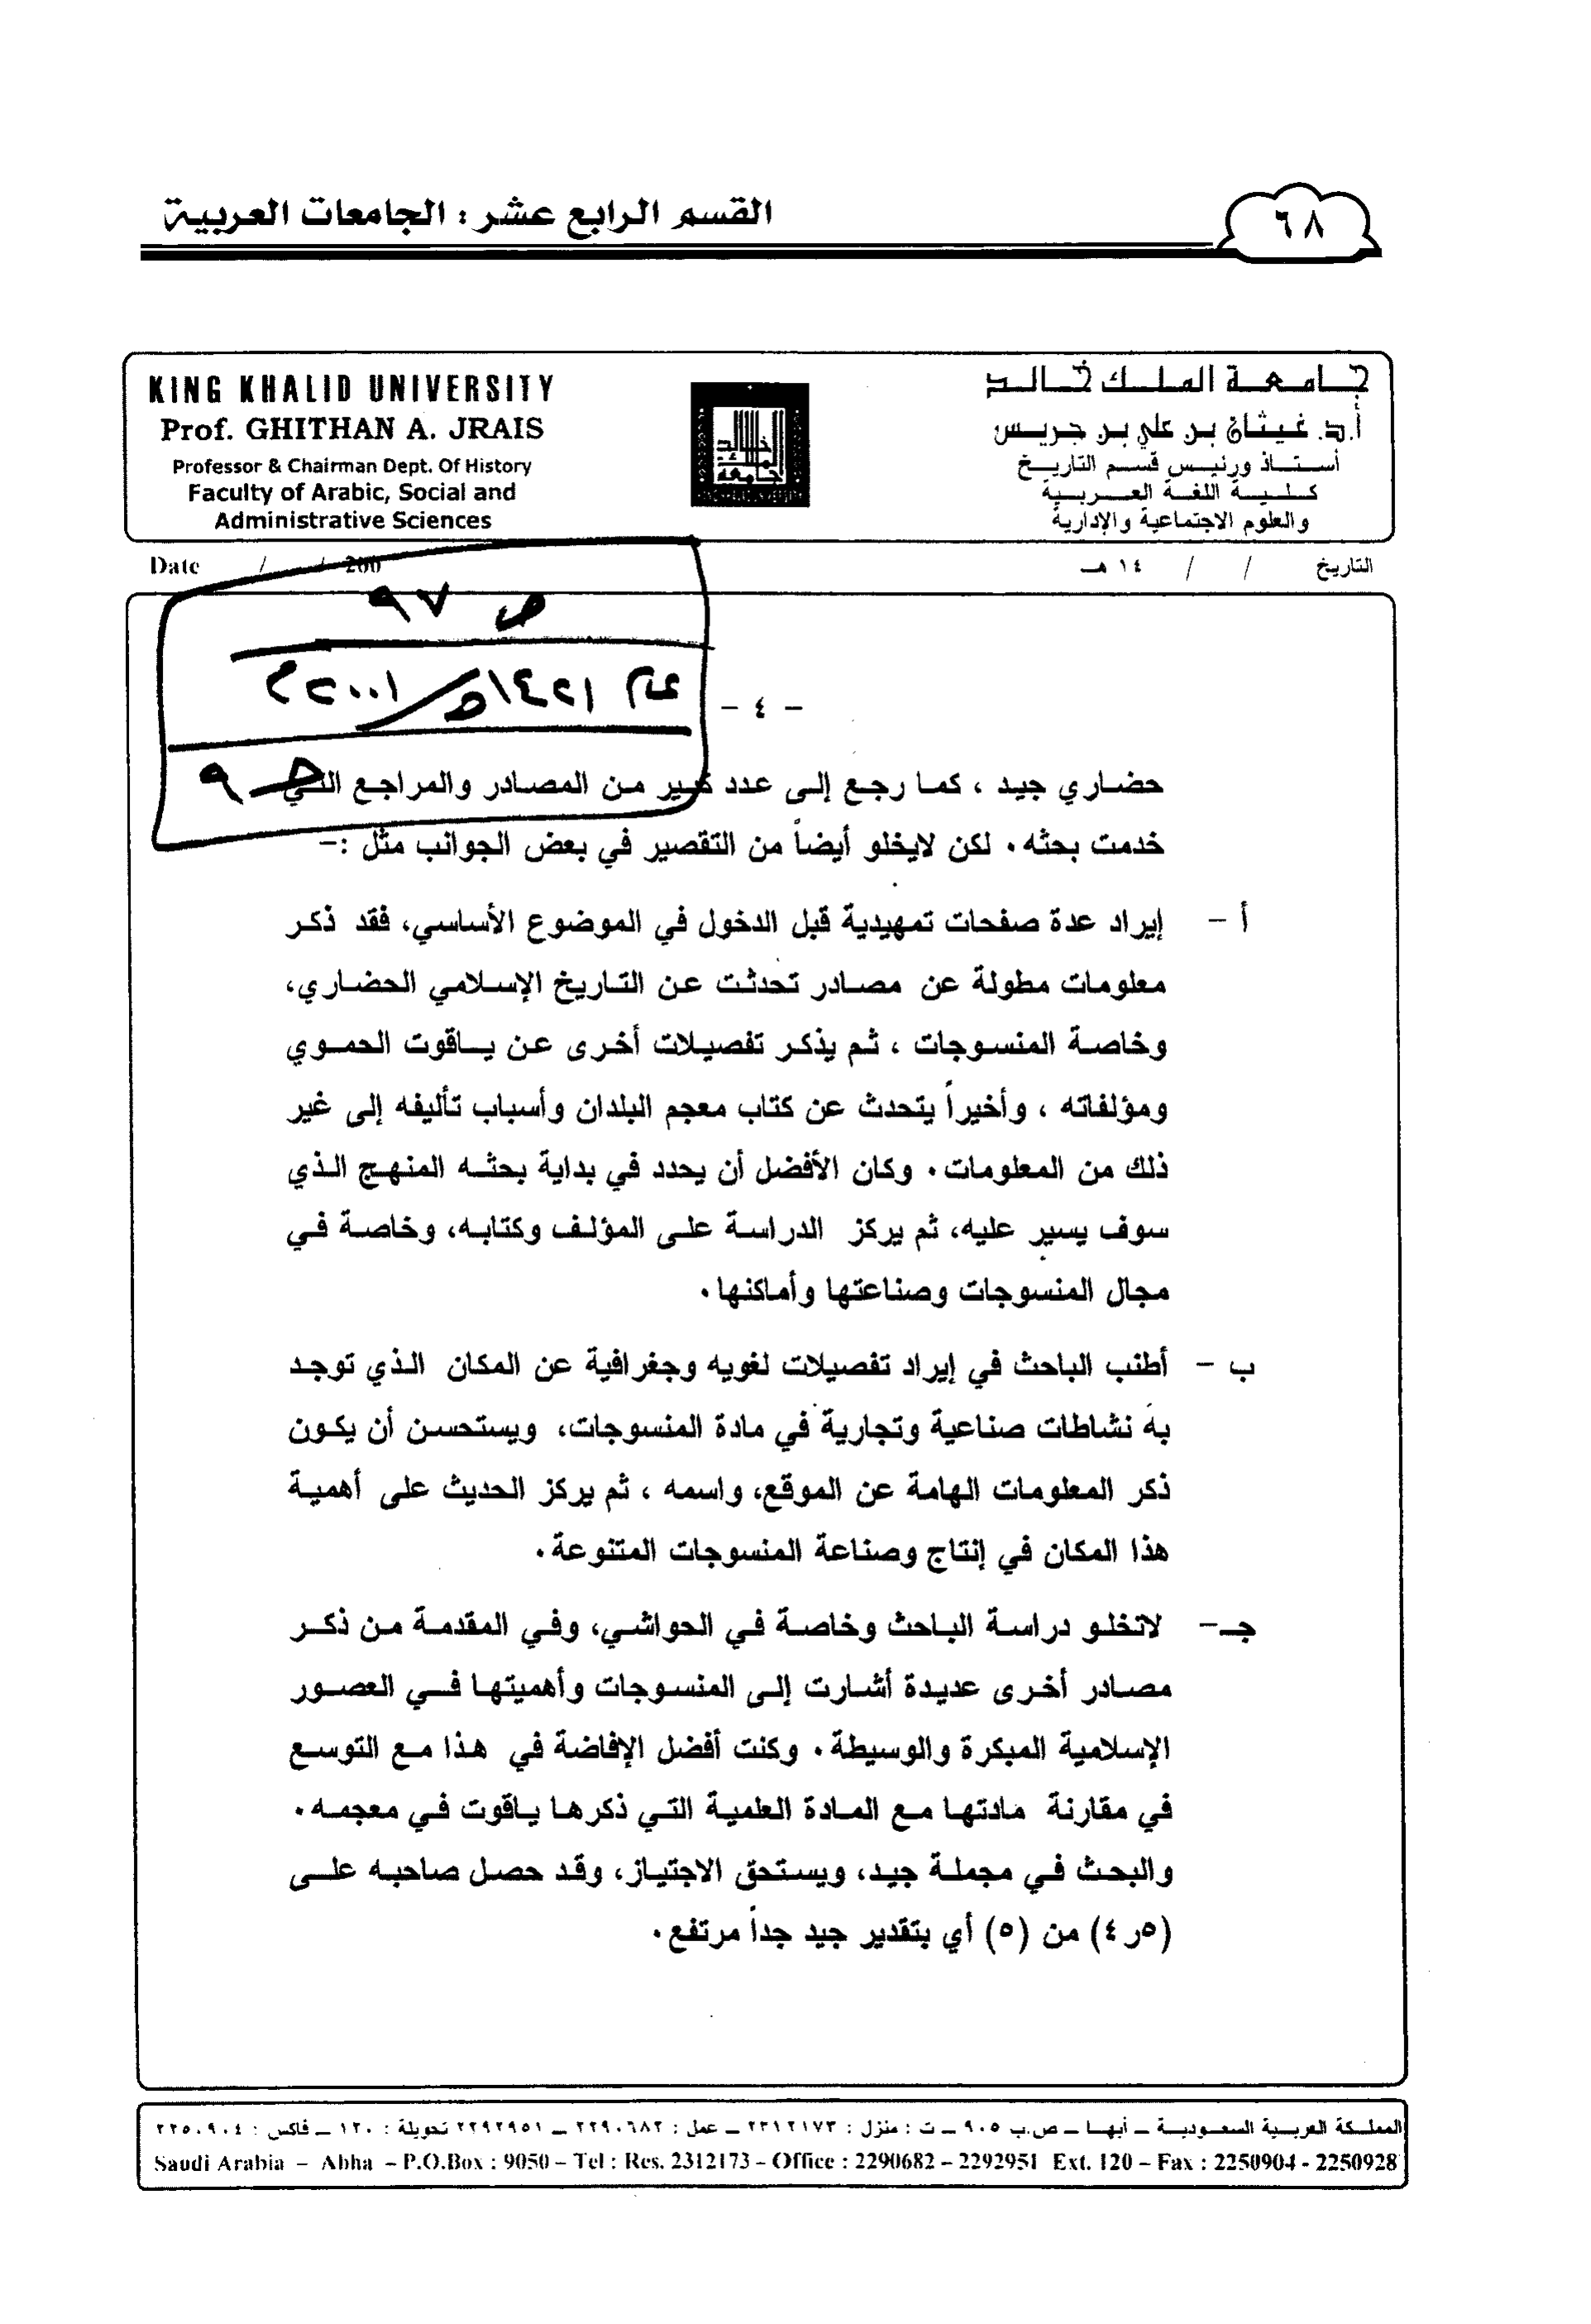 القسم الرابع عشر : الجامعات العربية
٦٨
KING KHALID UNIVERSITY
Prof. GHITHAN A. JRAIS
Professor & Chairman Dept. Of History
Faculty of Arabic, Social and
Administrative Sciences
جامعة الملك خالد
جامعة الملك خالد
أ.د. غيثان بن علي بن جريس
أستاذ ورئيس قسم التاريخ
كلية اللغة العربية
والعلوم الاجتماعية والإدارية
Date / / 200
التاريخ / / ١٤هـ
ص ٩٧
عام ١٤٢١هـ/٢٠٠١م
جـ ٩
- ٤ -
حضاري جيد ، كما رجع إلى عدد كبير من المصادر والمراجع التي
خدمت بحثه. لكن لايخلو أيضاً من التقصير في بعض الجوانب مثل :-
أ - إيراد عدة صفحات تمهيدية قبل الدخول في الموضوع الأساسي، فقد ذكر
معلومات مطولة عن مصادر تحدثت عن التاريخ الإسلامي الحضاري،
وخاصة المنسوجات ، ثم يذكر تفصيلات أخرى عن ياقوت الحموي
ومؤلفاته ، وأخيراً يتحدث عن كتاب معجم البلدان وأسباب تأليفه إلى غير
ذلك من المعلومات. وكان الأفضل أن يحدد في بداية بحثه المنهج الذي
سوف يسير عليه، ثم يركز الدراسة على المؤلف وكتابه، وخاصة في
مجال المنسوجات وصناعتها وأماكنها.
ب - أطنب الباحث في إيراد تفصيلات لغويه وجغرافية عن المكان الذي توجد
به نشاطات صناعية وتجارية في مادة المنسوجات، ويستحسن أن يكون
ذكر المعلومات الهامة عن الموقع، واسمه ، ثم يركز الحديث على أهمية
هذا المكان في إنتاج وصناعة المنسوجات المتنوعة.
جـ- لاتخلو دراسة الباحث وخاصة في الحواشي، وفي المقدمة من ذكر
مصادر أخرى عديدة أشارت إلى المنسوجات وأهميتها في العصور
الإسلامية المبكرة والوسيطة. وكنت أفضل الإفاضة في هذا مع التوسع
في مقارنة مادتها مع المادة العلمية التي ذكرها ياقوت في معجمه.
والبحث في مجملة جيد، ويستحق الاجتياز، وقد حصل صاحبه على
(٥ر٤) من (٥) أي بتقدير جيد جداً مرتفع.
المملكة العربية السعودية – أبها – ص.ب ٩٠٥ – ت : منزل : ٢٣١٢١٧٣ – عمل : ٢٢٩٠٦٨٢ – ٢٢٩٢٩٥١ تحويلة : ١٢٠ – فاكس : ٢٢٥٠٩٠٤
Saudi Arabia – Abha – P.O.Box : 9050 – Tel : Res. 2312173 – Office : 2290682 – 2292951 Ext. 120 – Fax : 2250904 - 2250928